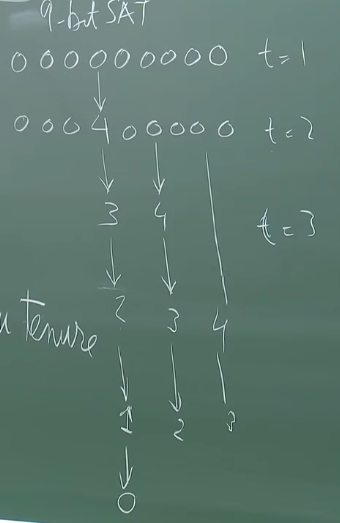 9-bit SAT
0 0 0 0 0 0 0 0 0 t=1
0 0 0 4 0 0 0 0 0 t=2
3 4 t=3
2 3 4
tenure
1 2 3
0